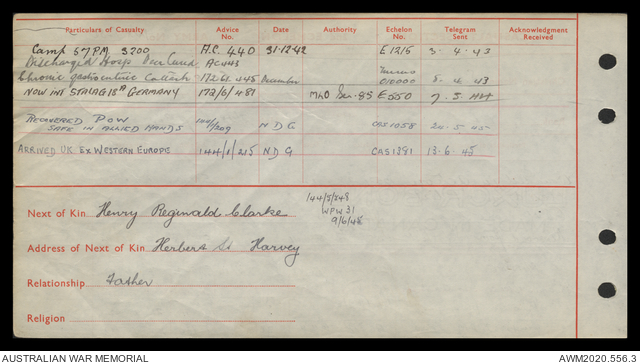 Particulars of Casualty Advice No. Date Authority Echelon No. Telegram Sent Acknowledgment Received
Camp 57 PM 3200 A.C. 440 31.12.42 E12/5 3. 4. 43
Discharged Hosp AC443
Chronic gastroenteric Catarrh 172/6/445 December 010000 5. 4. 43
NOW INT STALAG 18A GERMANY 172/6/481 E550 7. 3. 44
RECOVERED POW
SAFE IN ALLIED HANDS 144/1/209 N D G CAS1058 20-5-45
ARRIVED UK EX WESTERN EUROPE 144/1/215 N D G CAS1391 13-6-45
144/5/248
WPW 31
9/6/45
Next of Kin Henry Reginald Clarke
Address of Next of Kin Herbert St Harvey
Relationship Father
Religion
AUSTRALIAN WAR MEMORIAL AWM2020.556.3